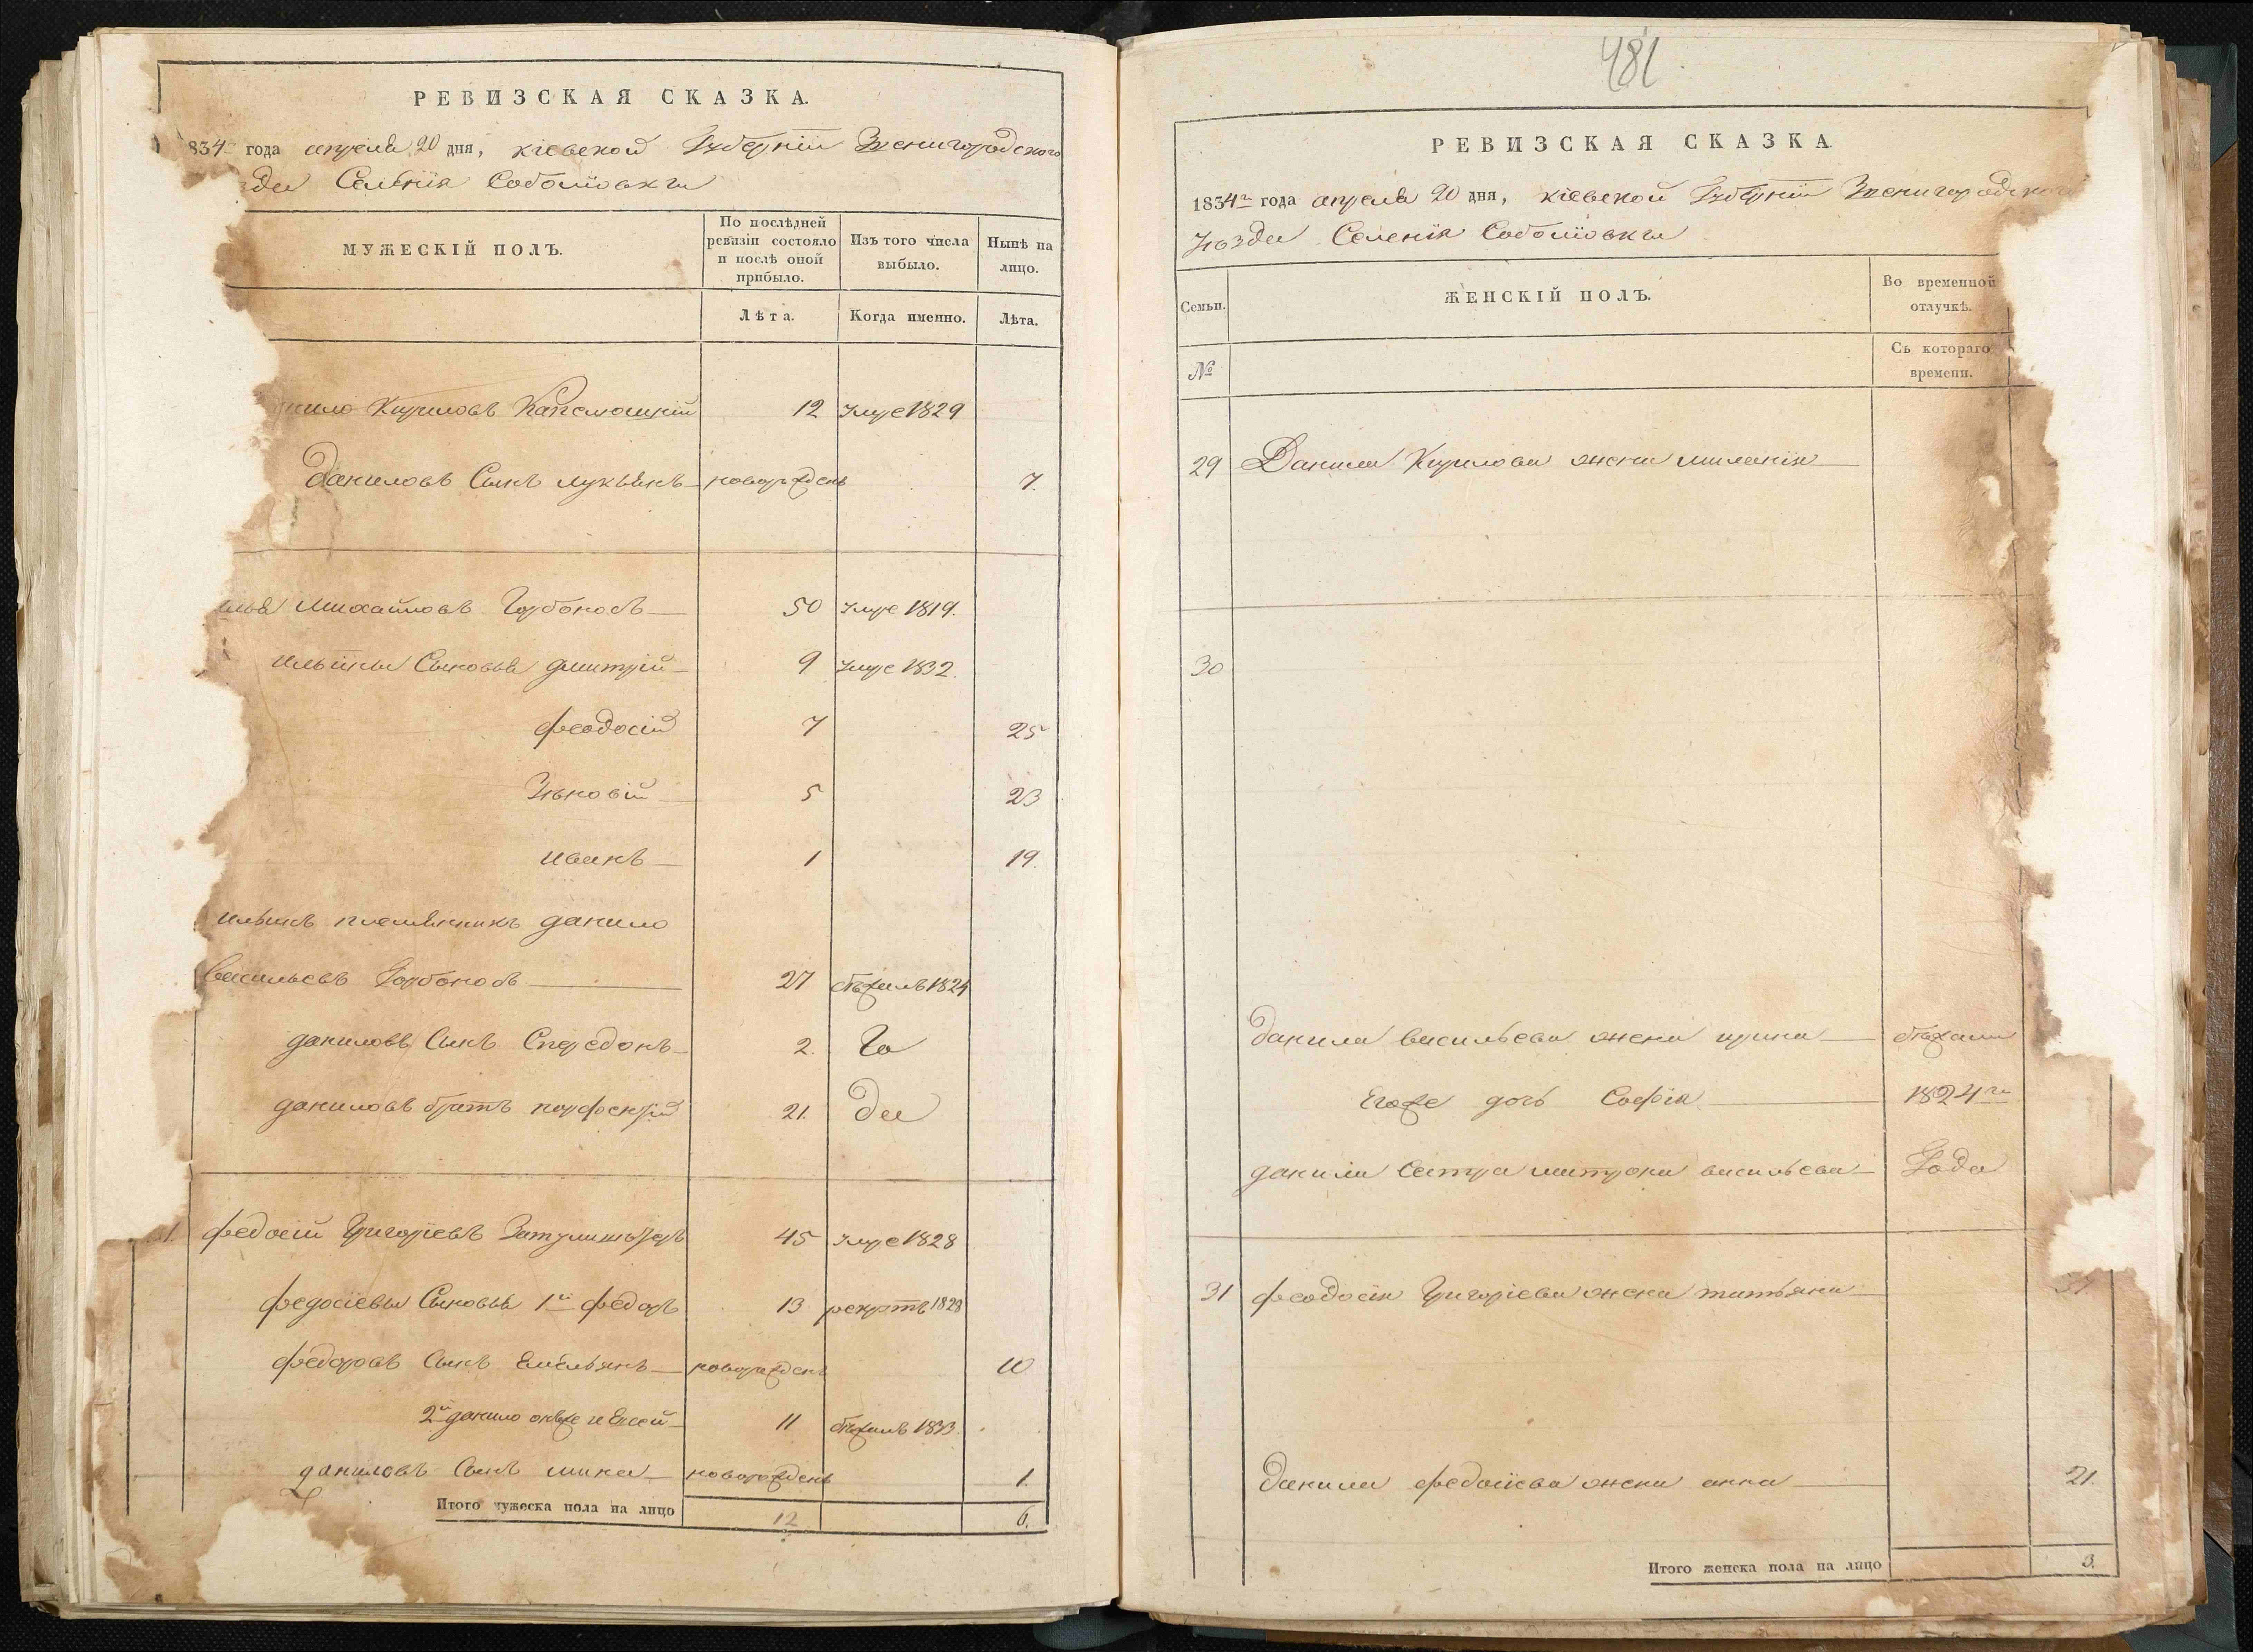 РЕВИЗСКАЯ СКАЗКА.
834 года апреля 20 дня, кіевской Губерніи Звенигородского
зда Селенія Соболиовки
МУЖЕСКІЙ ПОЛЪ.
По послѣдней ревизіи состояло и послѣ оной прибыло.
Изъ того числа выбыло.
Нынѣ на лицо.
Лѣта.
Когда именно.
Лѣта.
нило Кириловъ 12 Умре 1829
Даниловъ Сынъ лукьянъ новорожденъ 7.
Михайловъ Горбоносъ 50 Умре 1819.
Ильины Сыновья дмитрій 9 Умре 1832.
феодосій 7 25
Зѣновій 5 23
иванъ 1 19.
ильинъ племянникъ данило
Васильевъ Горбоносъ 27 бѣжалъ 1824
даниловъ Сынъ Спередонъ 2. Го
даниловъ братъ порфеирій 21. да
31 федосій Григоріевъ 45 Умре 1828
федосіевы Сыновья 1й федоръ 13 рекрутъ 1828
федоровъ Сынъ Емельянъ новорожденъ 10
2й данило онже и Елсей 11 бѣжалъ 1833.
даниловъ Сынъ мина новорожденъ 1.
Итого мужеска пола на лицо 12 6.
481
РЕВИЗСКАЯ СКАЗКА.
1834го года апреля 20 дня, кіевской Губерніи Звенигородского
Уѣзда Селенія Соболиовки
Семьи.
ЖЕНСКІЙ ПОЛЪ.
Во временной отлучкѣ.
№
Съ котораго времени.
29 Данила Кирилова жена миланія
30
Данила васильева жена ирина бѣжали
Егоже дочь Софія 1824го
данила Сестра матрона васильева Года
31 феодосія Григоріева жена татьяна
Данила федосіева жена анна 21.
Итого женска пола на лицо 3.